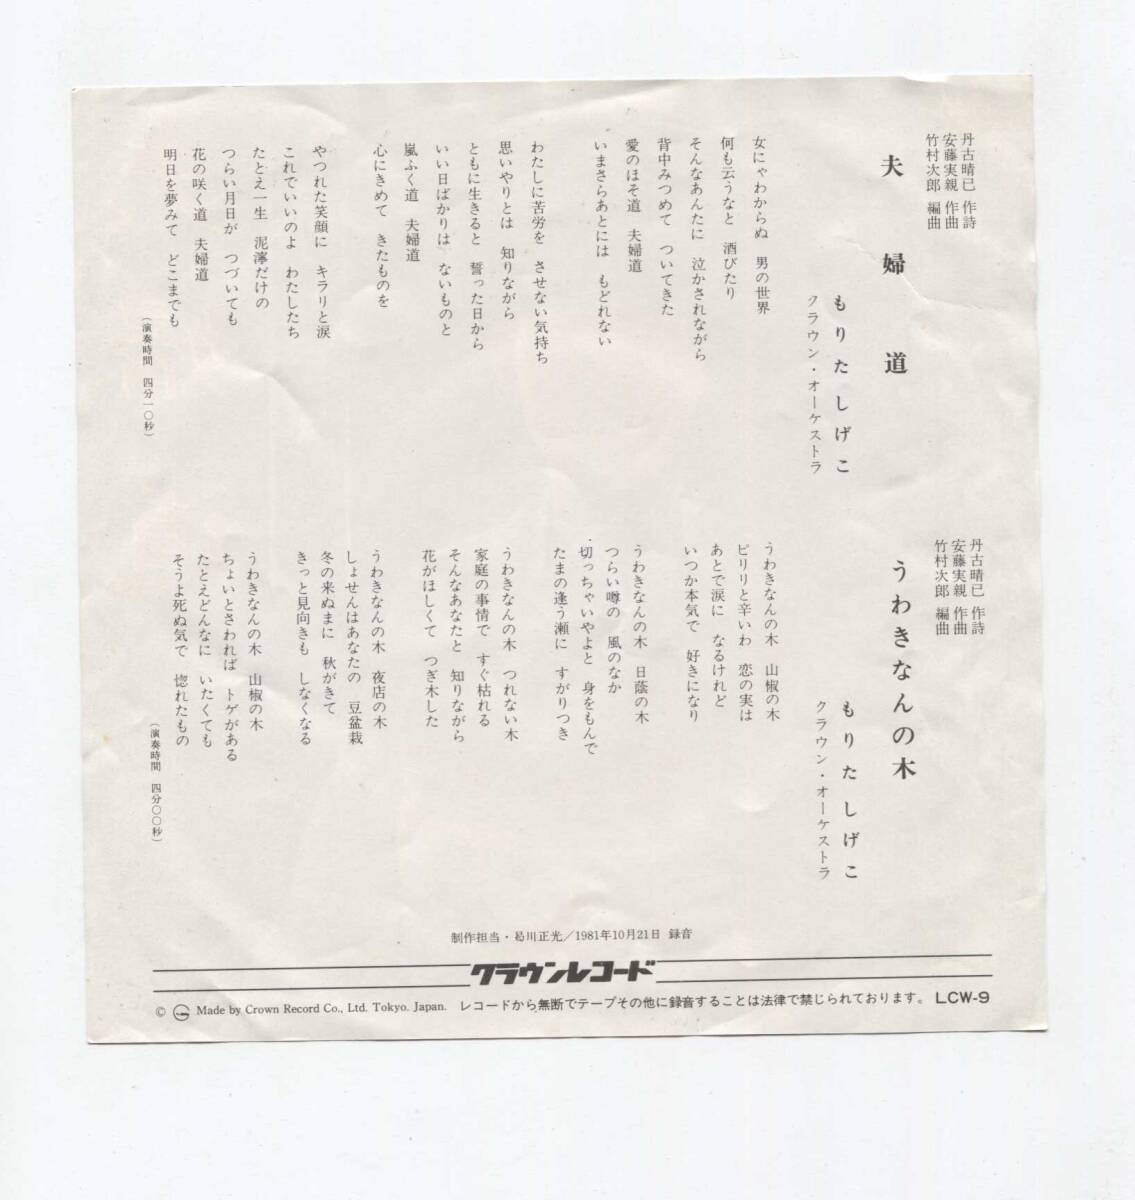 丹古晴巳 作詩
安藤実親 作曲
竹村次郎 編曲
夫婦道
もりたしげこ
クラウン・オーケストラ
女にゃわからぬ 男の世界
何も云うなと 酒びたり
そんなあんたに 泣かされながら
背中みつめて ついてきた
愛のほそ道 夫婦道
いまさらあとには もどれない
わたしに苦労を させない気持ち
思いやりとは 知りながら
ともに生きると 誓った日から
いい日ばかりは ないものと
嵐ふく道 夫婦道
心にきめて きたものを
やつれた笑顔に キラリと涙
これでいいのよ わたしたち
たとえ一生 泥濘だけの
つらい月日が つづいても
花の咲く道 夫婦道
明日を夢みて どこまでも
(演奏時間 四分一〇秒)
丹古晴巳 作詩
安藤実親 作曲
竹村次郎 編曲
うわきなんの木
もりたしげこ
クラウン・オーケストラ
うわきなんの木 山椒の木
ピリリと辛いわ 恋の実は
あとで涙に なるけれど
いつか本気で 好きになり
うわきなんの木 日蔭の木
つらい噂の 風のなか
切っちゃいやよと 身をもんで
たまの逢う瀬に すがりつき
うわきなんの木 つれない木
家庭の事情で すぐ枯れる
そんなあなたと 知りながら
花がほしくて つぎ木した
うわきなんの木 夜店の木
しょせんはあなたの 豆盆栽
冬の来ぬまに 秋がきて
きっと見向きも しなくなる
うわきなんの木 山椒の木
ちょいとさわれば トゲがある
たとえどんなに いたくても
そうよ死ぬ気で 惚れたもの
(演奏時間 四分〇〇秒)
制作担当・川正光/1981年10月21日 録音
クラウンレコード
© Made by Crown Record Co., Ltd. Tokyo. Japan. レコードから無断でテープその他に録音することは法律で禁じられております。 LCW-9